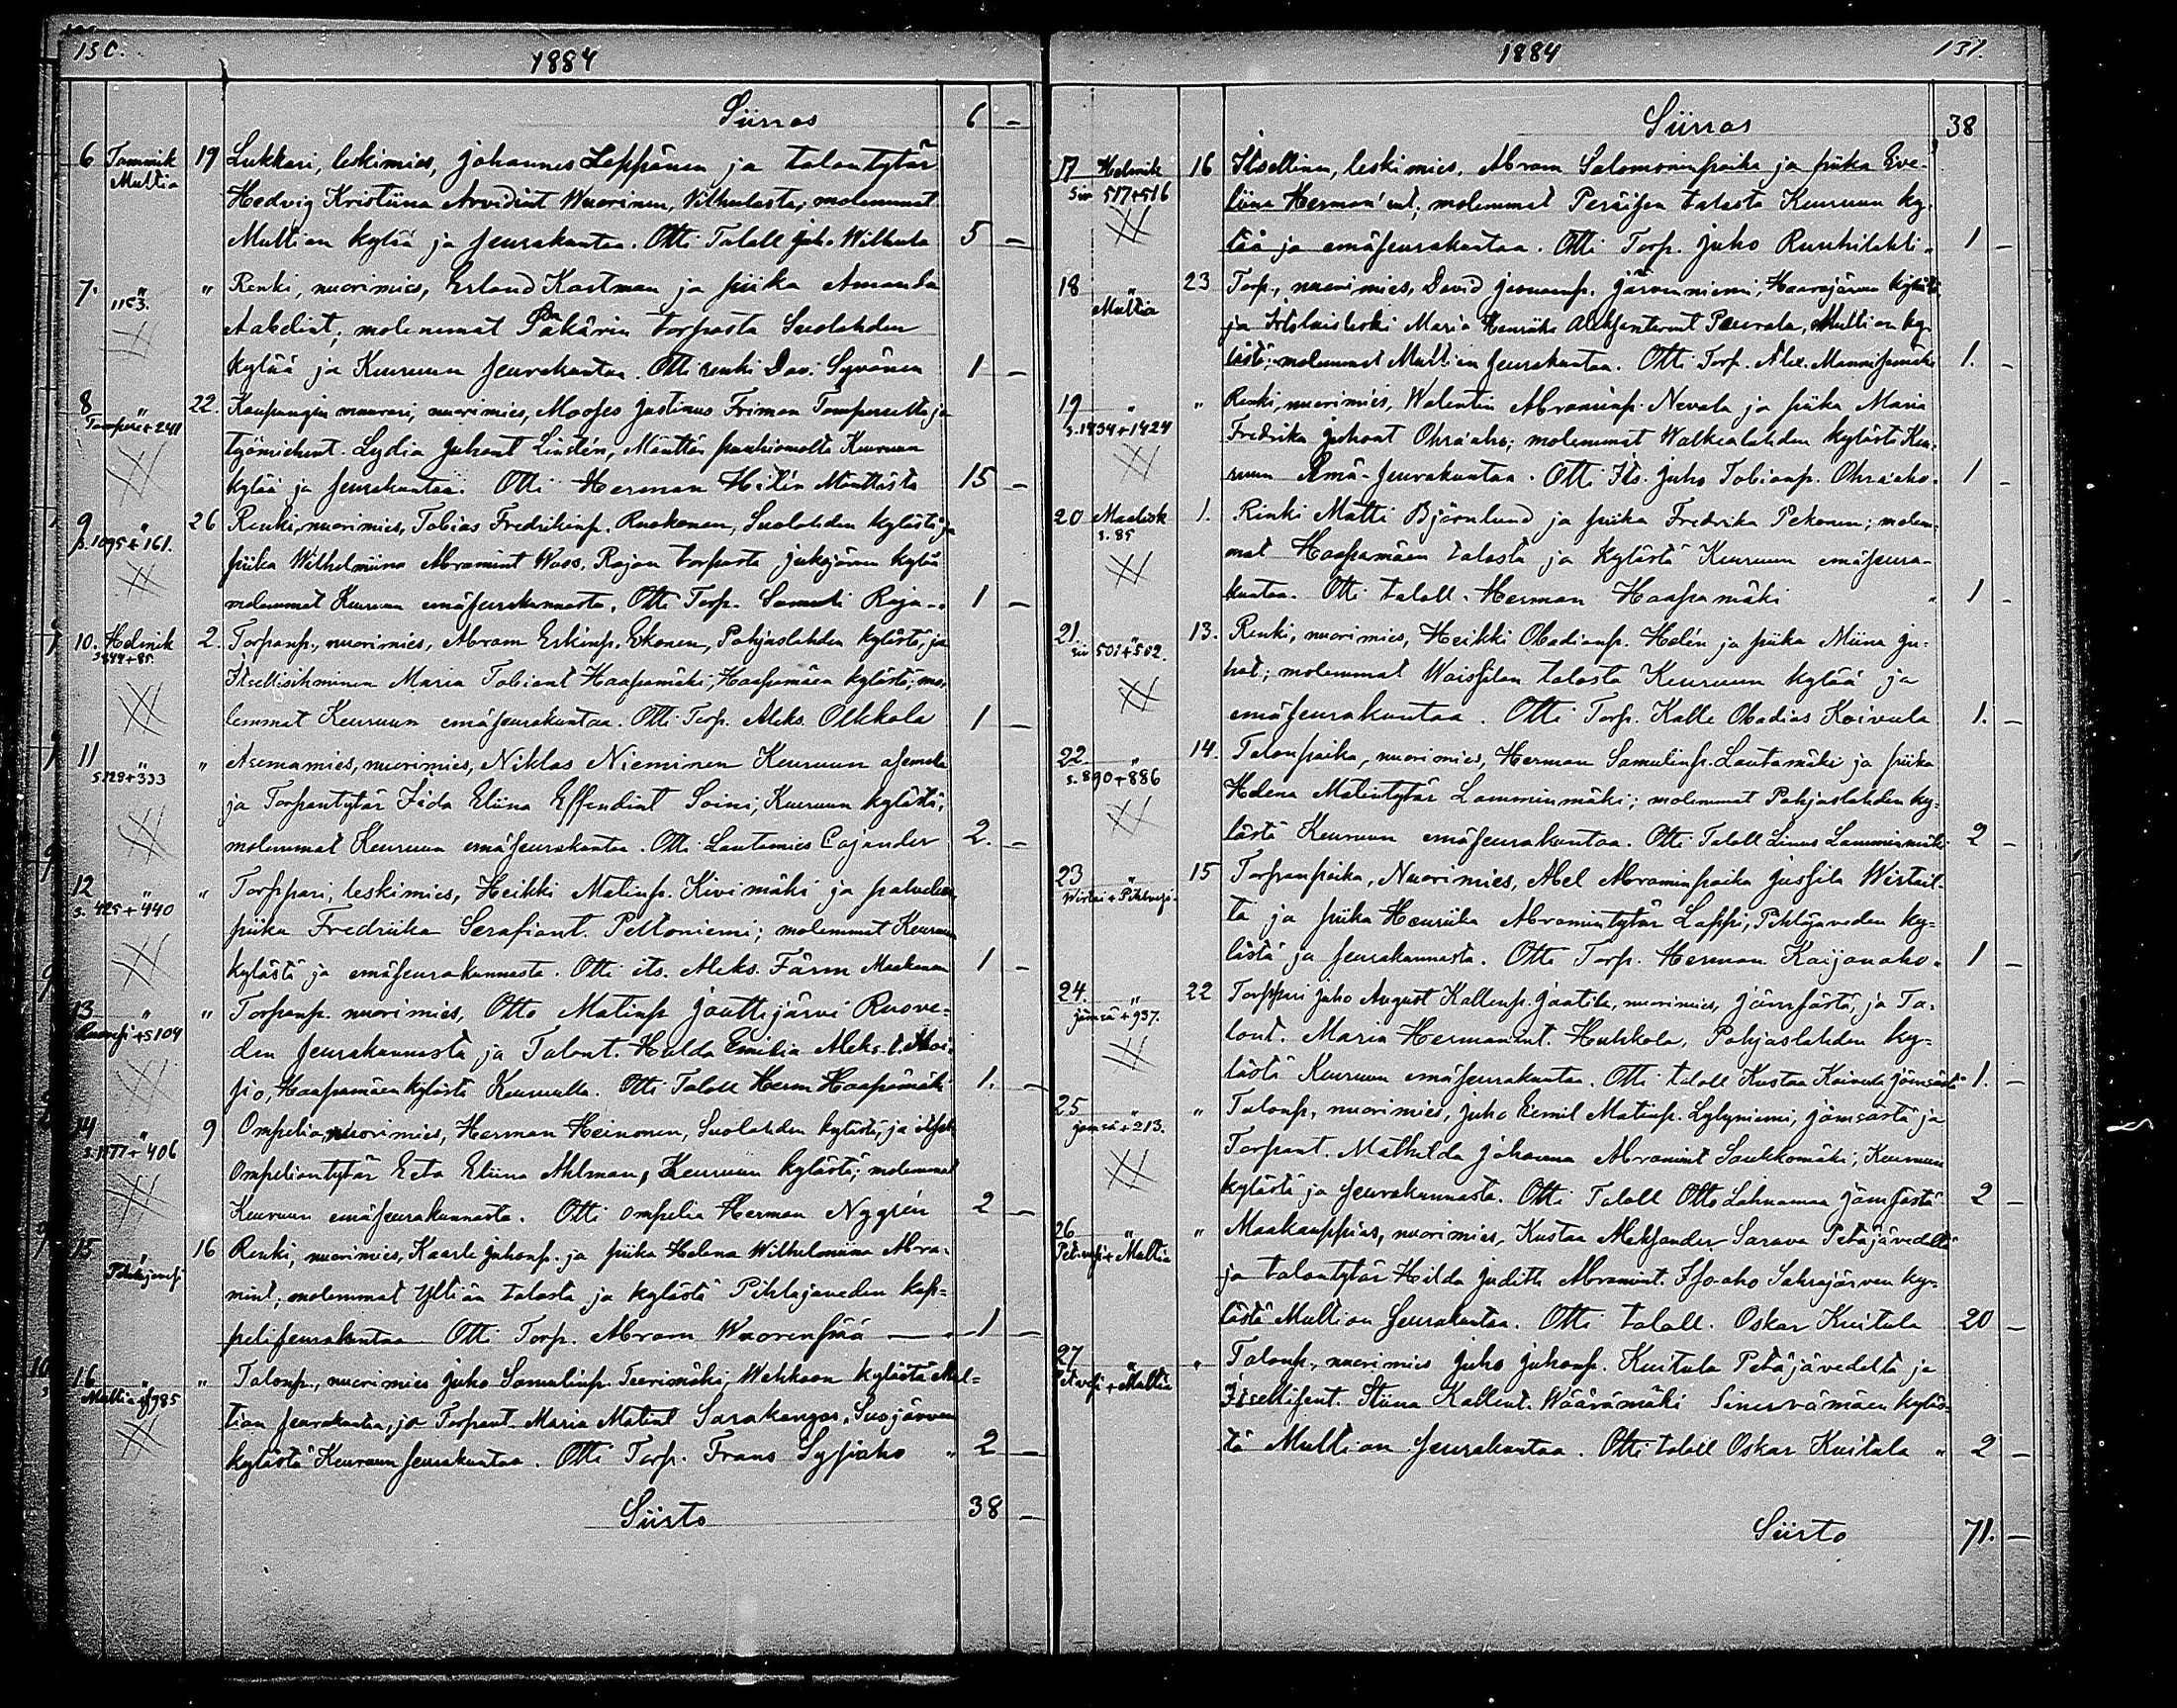 130.
1884
Siirros 6 –
6 Tammik 19 Lukkari, leskimies, Johannes Leppänen ja talontytär
Multia Hedvig Kristiina Arvidint Wuorinen, Vilhulasta, molemmat
Multian kylää ja seurakuntaa. Otti Talall Juho Wilhula 5 –
7. " " Renki, nuorimies, Erland Kartman ja piika Amanda
1153. Aabelint; molemmat Pakärin torpasta Suolahden
kylää ja Keuruun seurakuntaa. Otti renki Dav. Syvänen 1 –
8 " 22. Kaupungin muurari, nuorimies, Mooses Justinus Friman Tampereelta ja
Tampere + 241 työmiehent. Lydia Juhont Lindén, Mänttän puuhiomolta Keuruun
kylää ja seurakuntaa. Otti Herman Helén Mänttästä 15 –
9 " 26 Renki, nuorimies, Tobias Fredrikinp. Ruokonen, Suolahden kylästä ja
s. 1095 + 161. piika Wilhelmiina Abramint Wass, Rajan torpasta Jukojärven kylää
molemmat Keuruun emäseurakunnasta. Otti Torp. Samuli Raja 1 –
10. Helmik 2. Torpanp., nuorimies, Abram Erkinp. Ekonen, Pohjaslahden kylästä, ja
s 844 + 85. Itsellisihminen Maria Tobiant Haapamäki, Haapamäen kylästä; mo-
lemmat Keuruun emäseurakuntaa. Otti Torp. Aleks. Olkkola 1 –
11 " " Asemamies, nuorimies, Niklas Nieminen Keuruun asemelta
s 129 + 333 ja Torpantytär Iida Eliina Effendint Soini, Keuruun kylästä,
molemmat Keuruun emäseurakuntaa. Otti Lautamies Cajander 2. –
12 " " Torppari, leskimies, Heikki Matinp. Kivimäki ja palvelus
s. 425 + 440 piika Fredriika Serafiant. Peltoniemi; molemmat Keuruun
kylästä ja emäseurakunnasta. Otti its. Aleks. Färm Maakunan 1 –
13 " " Torpanp. nuorimies, Otto Matinp Jouttijärvi Ruove-
Ruovesi + s 104 den seurakunnasta ja Talont. Hulda Emilia Aleks. t. Moi-
sio, Haapamäen kylästä Keuruulla. Otti Talall Herm Haapamäki 1. –
14 " 9 Ompelia, nuorimies, Herman Heinonen, Suolahden kylästä, ja itsell.
s. 1177 + 406 Ompeliantytär Eeta Eliina Ahlman, Keuruun kylästä; molemmat
Keuruun emäseurakunnasta. Otti ompelia Herman Nygrén 2 –
15 " 16 Renki, nuorimies, Kaarle Juhonp. ja piika Helena Wilhelmiina Abra-
Pihlajavesi mint; molemmat Yltiän talosta ja kylästä Pihlajaveden kap-
peliseurakuntaa Otti Torp. Abram Wuorenpää 1 –
16 " " Talonp., nuorimies Juho Samulinp. Teerimäki, Wehkaan kylästä Mul-
Multia s 985 tian seurakuntaa, ja Torpant. Maria Matint Sarakangas, Suojärven
kylästä Keuruun seurakuntaa. Otti Torp. Frans Sysiaho " 2 –
Siirto 38 –
1884
131.
Siirros 38
17 Helmik 16 Itsellinen, leskimies, Abram Salomoninpoika ja piika Eve-
siv 517 + 516 liina Herman'int; molemmat Peräisen talosta Keuruun ky-
lää ja emäseurakuntaa. Otti Torp. Juho Ruuhilahti " 1 –
18 " 23 Torp., nuorimies, David Joonanp. Järvenniemi, Haarajärven kylästä
Multia ja Itslaisleski Maria Henriika Aleksanterint Peurala, Multian ky-
lästä; molemmat Multian seurakuntaa. Otti Torp. Alex. 1. –
19 " " Renki, nuorimies, Walentin Abraminp. Nevala ja piika Maria
s. 1434 + 1424 Fredrika Juhont Ohra-aho; molemmat Walkealahden kylästä Keu-
ruun Emä-seurakuntaa. Otti Its. Juho Tobianp. Ohra-aho. 1 –
20 Maalisk 1. Renki Matti Björnlund ja piika Fredrika Pekonen; molem-
s. 85 mat Haapamäen talosta ja kylästä Keuruun emäseura-
kuntaa. Otti talall. Herman Haapamäki " 1 –
21. " 13. Renki, nuorimies, Heikki Obadianp. Helén ja piika Miina Ju-
siv 501 + 502. hat; molemmat Waissilan talosta Keuruun kylää ja
emäseurakuntaa. Otti Torp. Kalle Obadias Koivula 1. –
22. " 14. Talonpoika, nuorimies, Herman Samulinp. Lautamäki ja piika
s. 890 + 886 Helena Matintytär Lamminmäki; molemmat Pohjaslahden ky-
lästä Keuruun emäseurakuntaa. Otti Talall Linus Lamminmäki 2 –
23 " 15 Torpanpoika, Nuorimies, Abel Abraminpoika Jussila Wirtail-
Wirtai + Pihlvesi ta ja piika Henriika Abramintytär Lappi, Pihlajaveden ky-
lästä ja seurakunnasta. Otti Torp. Herman Kaijanaho " 1 –
24. " 22 Torppari Juho August Kallenp. Jaatila, nuorimies, Jämsästä, ja Ta-
Jämsä + 937. lont. Maria Hermanint. Huhkola, Pohjaslahden ky-
lästä Keuruun emäseurakuntaa. Otti talall Kustaa Koivula Jämsästä 1. –
25 " " Talonp., nuorimies, Juho Eemil Matinp. Lylyniemi, Jämsästä ja
Jämsä + 213. Torpant. Mathilda Johanna Abramint Saukkomäki, Keuruun
kylästä ja seurakunnasta. Otti Talall Otto Lahnamaa Jämsästä 2 –
26 " " Maakauppias, nuorimies, Kustaa Aleksander Sarava Petäjävedeltä
Petvesi + Multia ja talontytär Hilda Judith Abramint. Iso-aho Sahrajärven ky-
lästä Multian seurakuntaa. Otti talall. Oskar Kuitula 20 –
27 " " Talonp., nuorimies Juho Juhonp. Kuitula Petäjävedeltä ja
Petvesi + Multia Itsellisent. Stiina Kallent. Wäärämäki Sinervämäen kyläs-
tä Multian seurakuntaa. Otti talall Oskar Kuitula " 2 –
Siirto 71. –